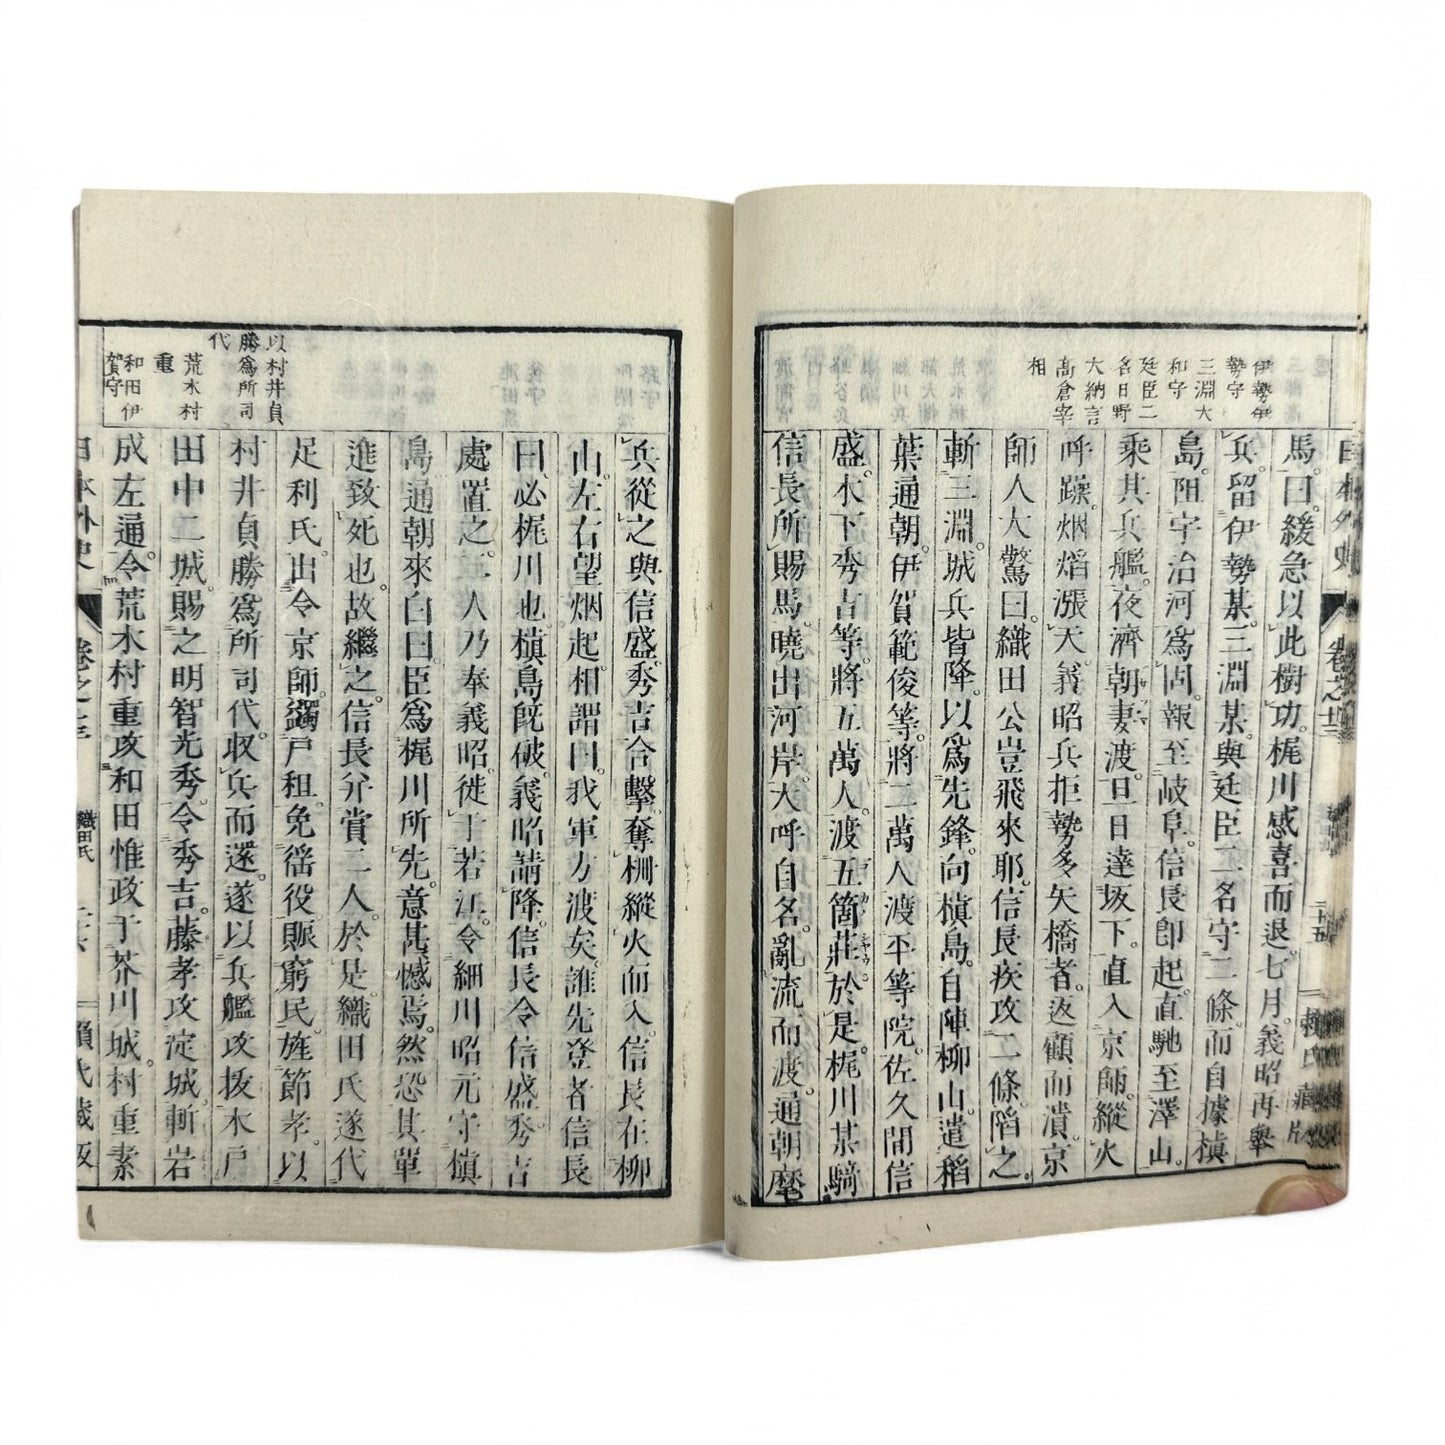 伊勢伊
勢守
三淵大
和守
廷臣二
名日野
大納言
高倉宰
相
日本外史
卷之十三
二十五
賴氏藏版
馬。曰。緩急以此樹功。梶川感喜而退。七月。義昭再舉
兵。留伊勢某。三淵某。與廷臣二名守二條。而自據槇
島。阻宇治河爲固。報至岐阜。信長卽起。直馳至澤山。
乘其兵艦。夜濟朝妻渡。旦日達坂下。直入京師。縱火
呼躁。烟焰漲天。義昭兵拒勢多矢橋者。返顧而潰。京
師人大驚曰。織田公豈飛來耶。信長疾攻二條。陷之。
斬三淵。城兵皆降。以爲先鋒。向槇島。自陣柳山。遣稻
葉通朝。伊賀範俊等。將二萬人渡平等院。佐久間信
盛。木下秀吉等。將五萬人。渡五箇莊。於是。梶川某騎
信長所賜馬。曉出河岸。大呼自名。亂流而渡。通朝麾
兵從之。與信盛秀吉合擊。奪柵縱火而入。信長在柳
山。左右望烟起。相謂曰。我軍方渡矣。誰先登者。信長
曰。必梶川也。槇島旣破。義昭請降。信長令信盛秀吉
處置之。二人乃奉義昭。徙于若江。令細川昭元守槇
島。通朝來白曰。臣爲梶川所先。意甚憾焉。然恐其單
進致死也。故繼之。信長幷賞二人。於是織田氏遂代
足利氏。出令京師。蠲戶租。免徭役。賑窮民。旌節孝。以
村井貞勝爲所司代。收兵而還。遂以兵艦攻拔木戶
田中二城。賜之明智光秀。令秀吉。藤孝攻淀城。斬岩
成左通。令荒木村重攻和田惟政于芥川城。村重素
以村井貞
勝爲所司
代
荒木村
重
和田伊
賀守
日本外史
卷之十三
織田氏
二十六
賴氏藏版